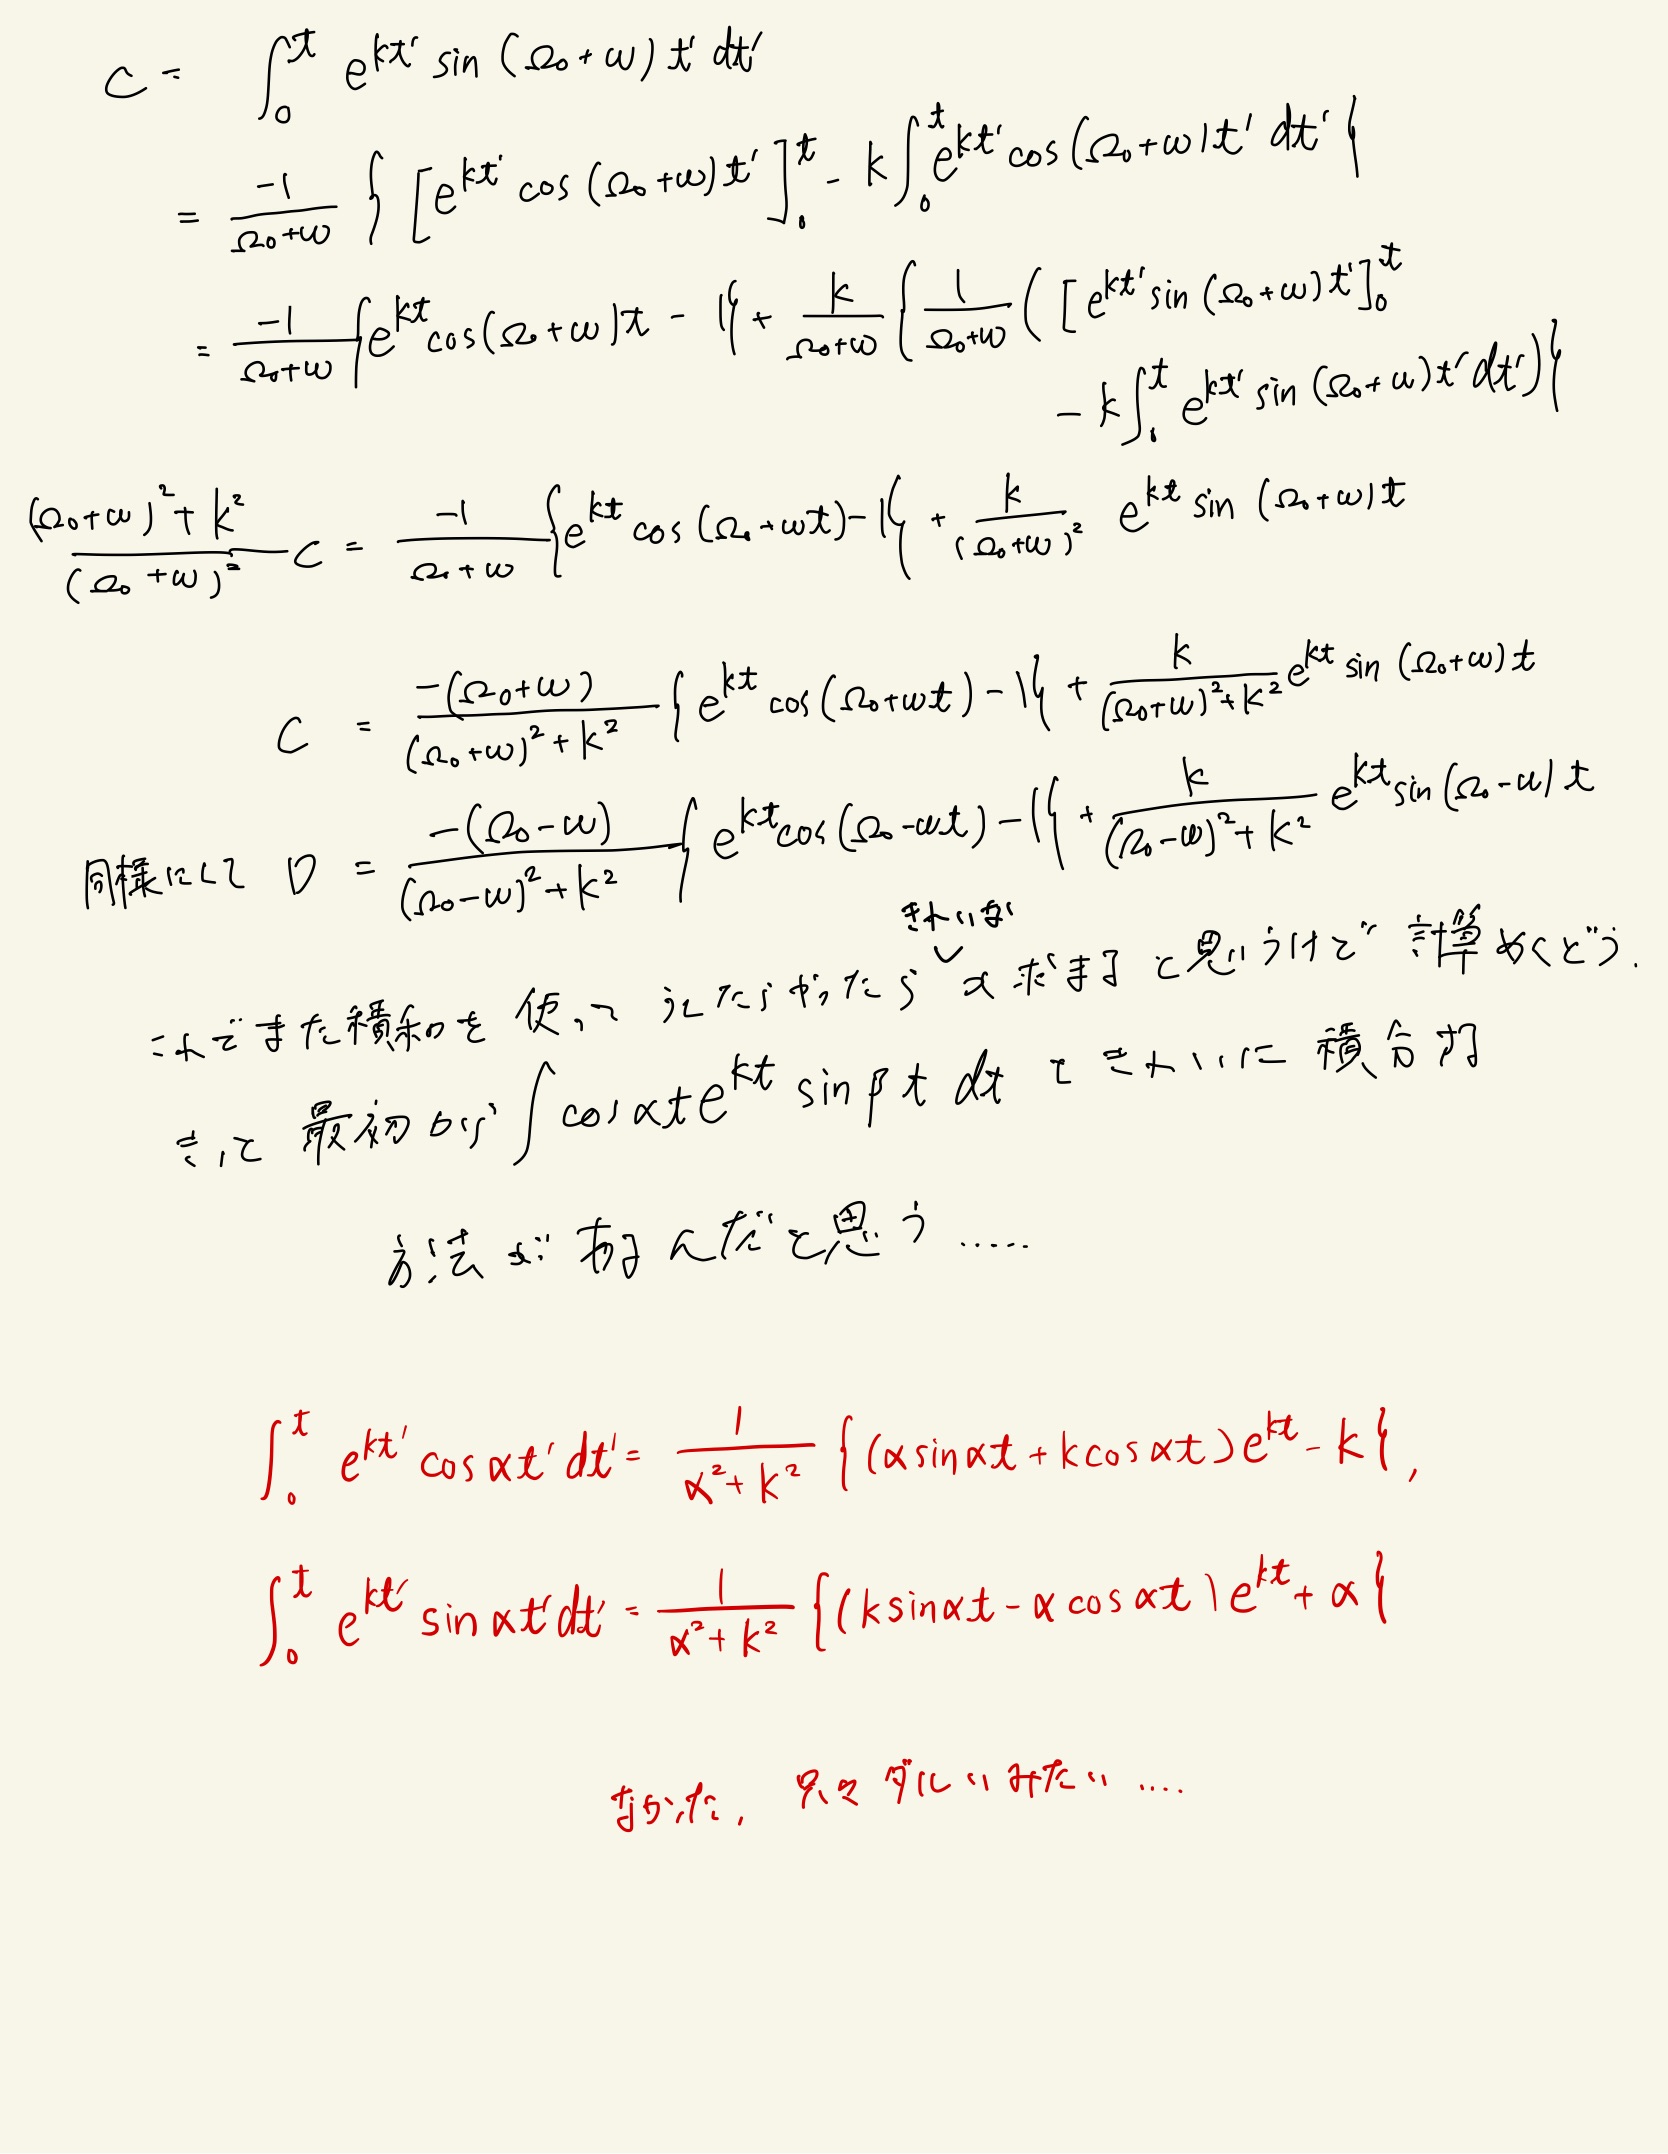 C = ∫₀ᵗ e^{kt'} sin (Ω₀+ω) t' dt'
= -1/(Ω₀+ω) { [e^{kt'} cos (Ω₀+ω) t']₀ᵗ - k∫₀ᵗ e^{kt'} cos (Ω₀+ω) t' dt' }
= -1/(Ω₀+ω) {e^{kt} cos(Ω₀+ω)t - 1} + k/(Ω₀+ω) { 1/(Ω₀+ω) ( [e^{kt'} sin (Ω₀+ω) t']₀ᵗ
- k∫₀ᵗ e^{kt'} sin (Ω₀+ω) t' dt') }
((Ω₀+ω)²+k²)/(Ω₀+ω)² C = -1/(Ω₀+ω) {e^{kt} cos (Ω₀+ωt) - 1} + k/(Ω₀+ω)² e^{kt} sin (Ω₀+ω) t
C = -(Ω₀+ω)/((Ω₀+ω)²+k²) { e^{kt} cos (Ω₀+ωt) - 1} + k/((Ω₀+ω)²+k²) e^{kt} sin (Ω₀+ω) t
同様にして D = -(Ω₀-ω)/((Ω₀-ω)²+k²) { e^{kt} cos (Ω₀-ωt) - 1} + k/((Ω₀-ω)²+k²) e^{kt} sin (Ω₀-ω) t
きれいな
これでまた積和を使って うんたらかんたら x 求まる と思うけど 計算めんどう.
きっと 最初から ∫ cos αt e^{kt} sin βt dt を きれいに 積分する
方法が あるんだと思う .....
∫₀ᵗ e^{kt'} cos αt' dt' = 1/(α²+k²) { (α sin αt + k cos αt) e^{kt} - k },
∫₀ᵗ e^{kt'} sin αt' dt' = 1/(α²+k²) { (k sin αt - α cos αt) e^{kt} + α }
なかった, 只々 ダルいみたい ....